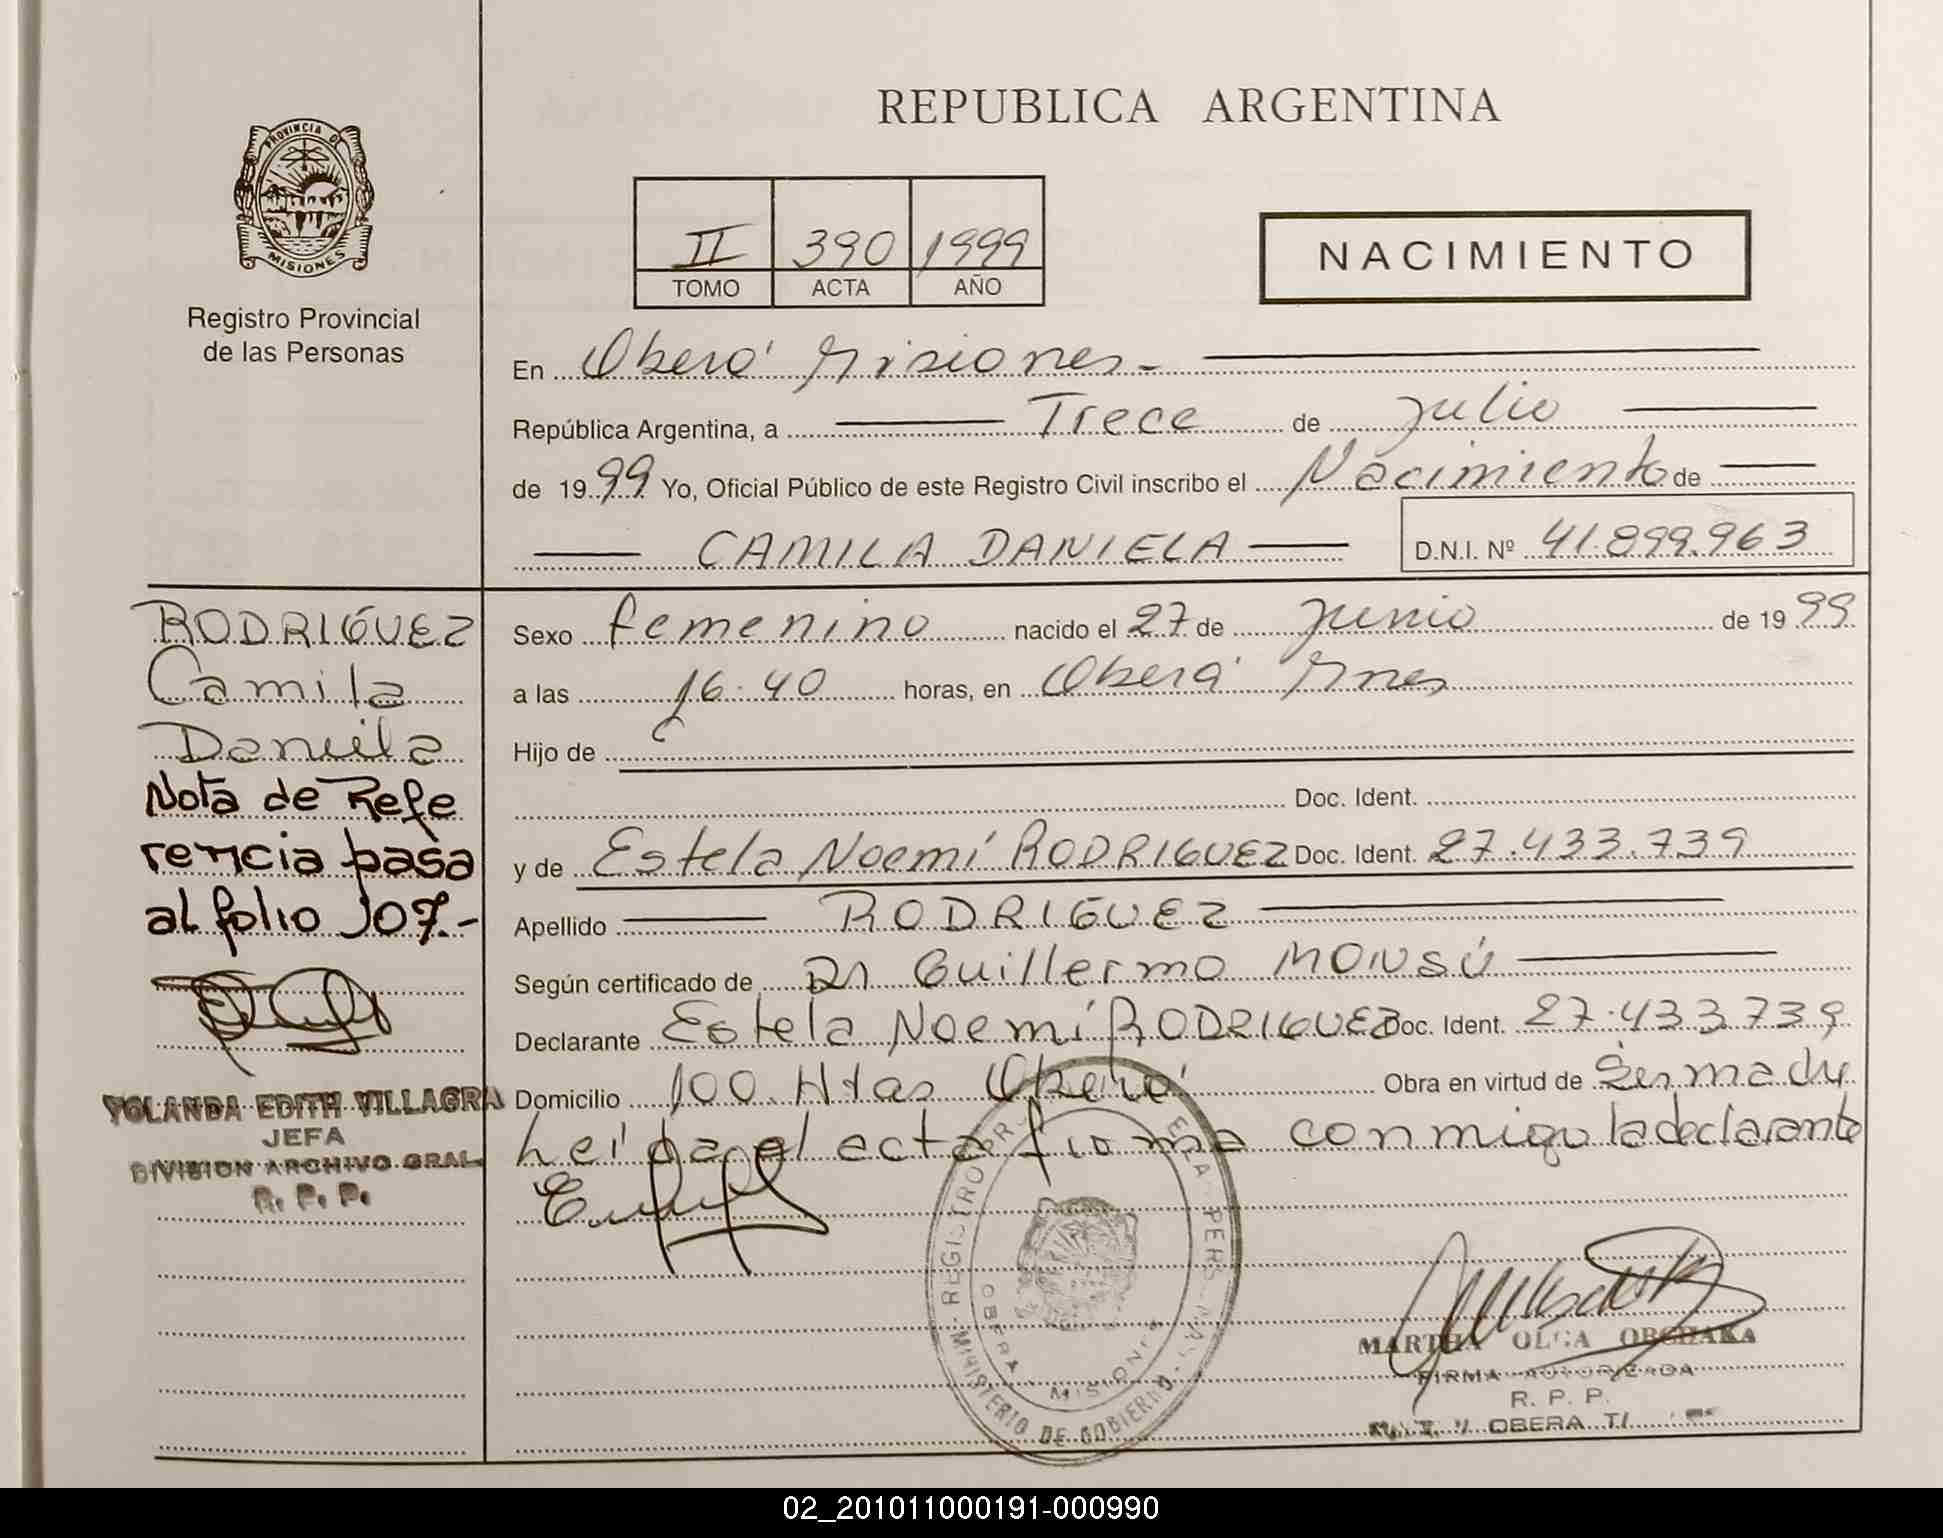 REPUBLICA ARGENTINA
PROVINCIA DE
MISIONES
Registro Provincial
de las Personas
II 390 1999
TOMO ACTA AÑO
NACIMIENTO
En Oberá Misiones.-
República Argentina, a Trece de Julio
de 1999 Yo, Oficial Público de este Registro Civil inscribo el Nacimiento de
CAMILA DANIELA D.N.I. Nº 41.899.963
RODRIGUEZ
Camila
Daniela
Nota de Refe
rencia pasa
al folio 107.-
YOLANDA EDITH VILLAGRA
JEFA
DIVISION ARCHIVO GRAL
R. P. P.
Sexo femenino nacido el 27 de Junio de 1999
a las 16:40 horas, en Oberá Mnes
Hijo de
Doc. Ident.
y de Estela Noemí RODRIGUEZ Doc. Ident. 27.433.739
Apellido RODRIGUEZ
Según certificado de Dr Guillermo MONSÚ
Declarante Estela Noemí RODRIGUEZ Doc. Ident. 27.433.739
Domicilio 100 Htas Oberá Obra en virtud de Ser madre
Leída el acta firma conmigo la declarante
REGISTRO PERS
MINISTERIO DE GOBIERNO
OBERA MISIONES
MARTHA OLGA OBCHAKA
FIRMA AUTORIZADA
R. P. P.
OBERA
02_201011000191-000990